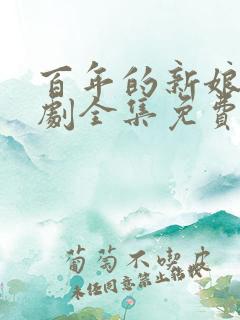 百年的新娘
劇全集免費
葡萄不喫皮
未经同意禁止转载